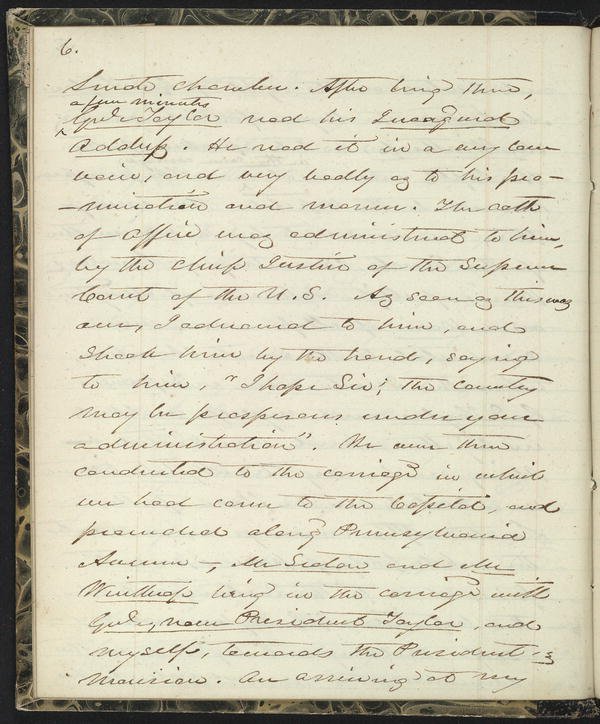 6.
Senate chamber. After being there,
a few minutes
Gen'l Taylor read his Inaugural
Address. He read it in a very low
voice, and very badly as to his pro-
-nunciation and manner. The oath
of office was administered to him,
by the Chief Justice of the Supreme
Court of the U.S. As soon as this was
over, I advanced to him, and
shook him by the hand, saying
to him, "I hope Sir; the country
may be prosperous under your
administration". We were then
conducted to the carriage in which
we had come to the Capitol, and
proceeded along Pennsylvania
Avenue -, Mr Seaton and Mr
Winthrop being in the carriage with
Gen'l, now President Taylor, and
myself, towards the President's
mansion. On arriving at my